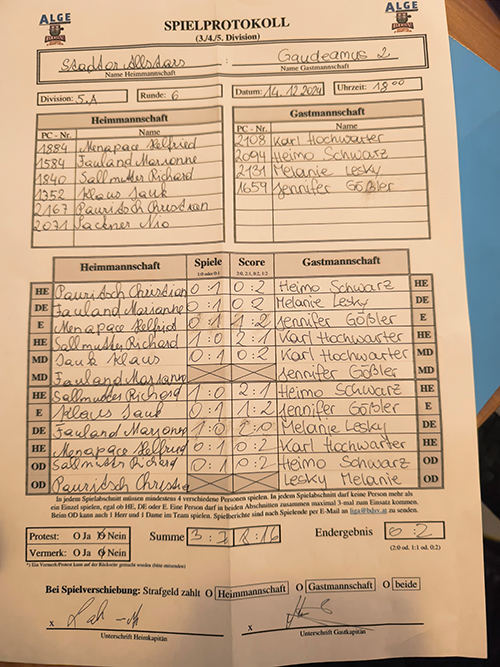 ALGE
SPIELPROTOKOLL
ALGE
(3./4./5. Division)
Stadtor Allstars : Gaudeamus 2
Name Heimmannschaft Name Gastmannschaft
Division: 5.A Runde: 6 Datum: 14.12.2024 Uhrzeit: 18 00
Heimmannschaft Gastmannschaft
PC - Nr. Name PC - Nr. Name
1884 Menapace Helfried 2108 Karl Hochwarter
1584 Fauland Marianne 2094 Heimo Schwarz
1840 Sallmutter Richard 2131 Melanie Lesky
1352 Klaus Jauk 1659 Jennifer Gößler
2167 Pauritsch Christian
2071 Packner Nio
Heimmannschaft Spiele Score Gastmannschaft
1:0 oder 0:1 2:0, 2:1, 0:2, 1:2
HE Pauritsch Christian 0:1 0:2 Heimo Schwarz HE
DE Fauland Marianne 0:1 0:2 Melanie Lesky DE
E Menapace Helfried 0:1 1:2 Jennifer Gößler E
HE Sallmutter Richard 1:0 2:1 Karl Hochwarter HE
MD Jauk Klaus 0:1 0:2 Karl Hochwarter MD
MD Fauland Marianne Jennifer Gößler MD
HE Sallmutter Richard 1:0 2:1 Heimo Schwarz HE
E Klaus Jauk 0:1 1:2 Jennifer Gößler E
DE Fauland Marianne 1:0 2:0 Melanie Lesky DE
HE Menapace Helfried 0:1 0:2 Karl Hochwarter HE
OD Sallmutter Richard 0:1 0:2 Heimo Schwarz OD
OD Pauritsch Christian Lesky Melanie OD
In jedem Spielabschnitt müssen mindestens 4 verschiedene Personen spielen. In jedem Spielabschnitt darf keine Person mehr als
ein Einzel spielen, egal ob HE, DE oder E. Eine Person darf in beiden Abschnitten zusammen maximal 3-mal zum Einsatz kommen.
Beim OD kann auch 1 Herr und 1 Dame im Team spielen. Spielberichte sind nach Spielende per E-Mail an liga@bdsv.at zu senden.
Protest: O Ja O Nein Summe 3:7 8:16 Endergebnis 0:2
Vermerk: O Ja O Nein (2:0 od. 1:1 od. 0:2)
*) Ein Vermerk/Protest kann auf der Rückseite gemacht worden (bitte mitsenden)
Bei Spielverschiebung: Strafgeld zahlt O Heimmannschaft O Gastmannschaft O beide
x x
Unterschrift Heimkapitän Unterschrift Gastkapitän